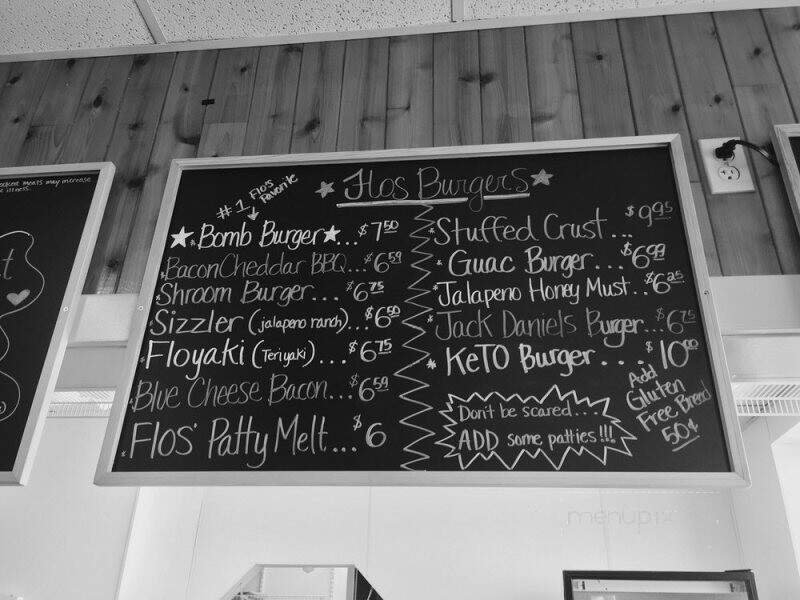 may increase
illness.
Flos Burgers
#1 Flo's
Favorite
Bomb Burger...$7.50
Bacon Cheddar BBQ...$6.59
Shroom Burger...$6.75
Sizzler (jalapeno ranch)...$6.50
Floyaki (Teriyaki)...$6.75
Blue Cheese Bacon...$6.59
Flos' Patty Melt...$6
Stuffed Crust...$9.95
Guac Burger...$6.99
Jalapeno Honey Must...$6.25
Jack Daniels Burger...$6.75
KeTO Burger....$10.00
Add
Gluten
Free Bread
50¢
Don't be scared...
ADD some patties!!!
menupix